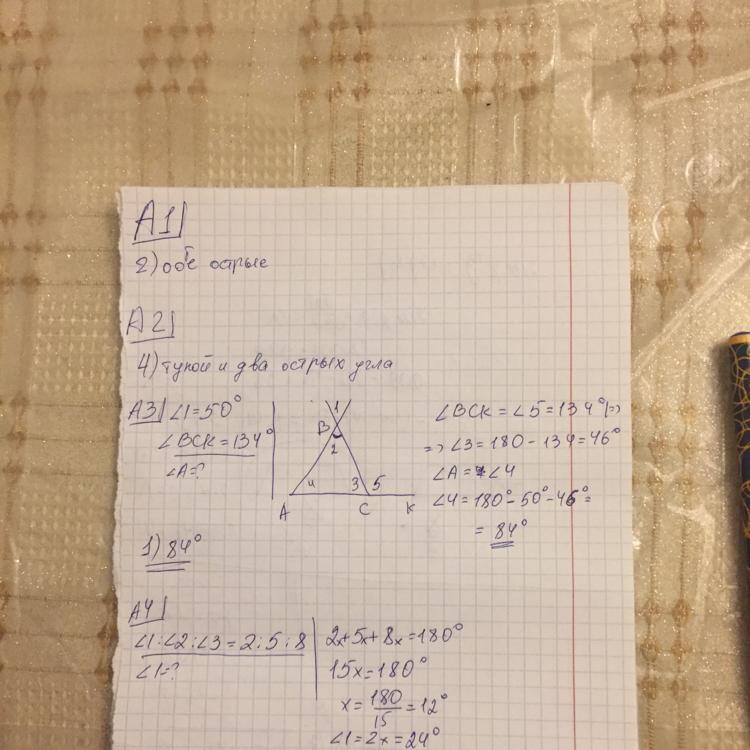 А1
2) обе острые
А2
4) тупой и два острых угла
А3 ∠1=50°
∠BCK=134°
∠A=?
1) 84°
1
B
2
4
3
5
A
C
K
∠BCK=∠5=134° =>
=> ∠3=180-134=46°
∠A=∠4
∠4=180°-50°-46°=
= 84°
А4
∠1:∠2:∠3=2:5:8
∠1=?
2x+5x+8x=180°
15x=180°
x=180/15=12°
∠1=2x=24°